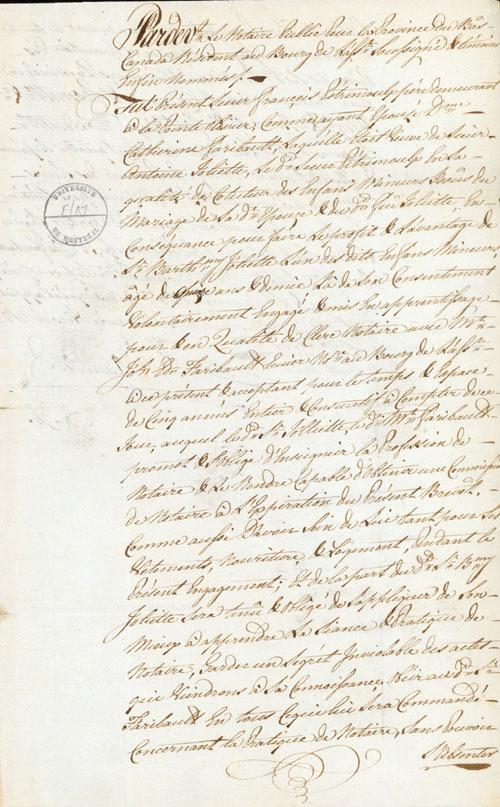 Pardevt. Le Notaire Public Pour la Province du Bas
Canada Résident au Bourg de L'assn. Soussigné & témoins
Enfin Nommés;
Fut Présent Sieur François Pétrimoulx père demeurant
à la Pointe Olivier, Comme ayant Epousé Dme
Catherine Faribault, Laquelle était Veuve de Sieur
Antoine Joliette, Le dt. Sieur Pétrimoulx En Sa
qualité de Cotuteur des Enfans Mineurs Issus du
Mariage de Sa dte. Epouse & du dt. feu Joliette, En
Conséquence pour faire Le profit & L'avantage de
Sr. Barthmy Joliette L'un des dits Enfans Mineur,
âgé de quinze ans & demie L'a de Son Consentement
Volontairement Engagé & mis En apprentissage
pour & en Qualité de Clerc Notaire avec Mtre
Jh. Edd. Faribault Ecuier Nre. au Bourg de L'assn.
à ce présent & acceptant pour le temps & Espace
de Cinq années Entier & Consécutif à Compter de ce
Jour, auquel le dt. Sr. Joliette, le dt. Mtre Faribault
promet & S'oblige d'Enseigner la Profession de
Notaire & Le Rendre Capable d'Obtenir une Commission
de Notaire à L'Expiration du Présent Brevet,
Comme aussi D'avoir Soin de Lui tant pour Ses
Vêtements, Nourriture, & Logement, pendant le
Présent Engagement; Et de la part du dt. Sr. Bmy
Joliette Sera tenu & obligé de S'appliquer de Son
Mieux à apprendre La Siance & Pratique de
Notaire, Garder un Segrét Inviolable des actes
que Viendrons à Sa Connoissance, Obéir au dt. Sr.
Faribault En tous Ce qui lui Sera Commandé
Concernant la Pratique de Notaire, Sans Pouvoir
S'absenter
UNIVERSITÉ
DE MONTRÉAL